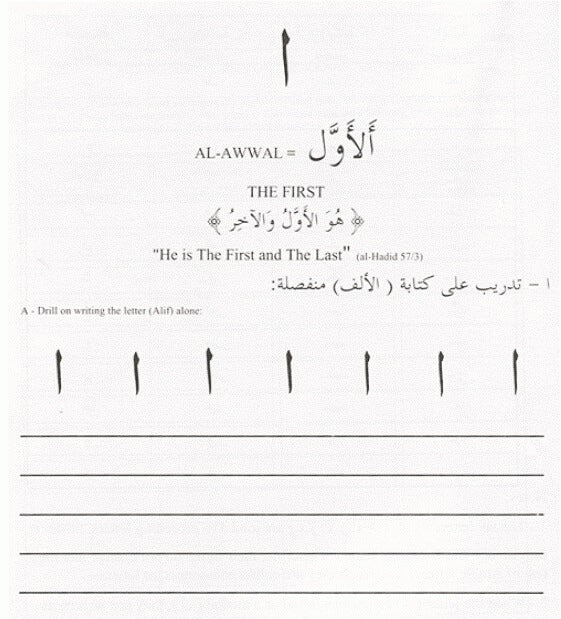 ا
AL-AWWAL = أَلأَوَّل
THE FIRST
﴿ هُوَ الأَوَّلُ وَالآخِرُ ﴾
"He is The First and The Last" (al-Hadid 57/3)
١ - تدريب على كتابة ( الألف ) منفصلة:
A - Drill on writing the letter (Alif) alone:
ا ا ا ا ا ا ا